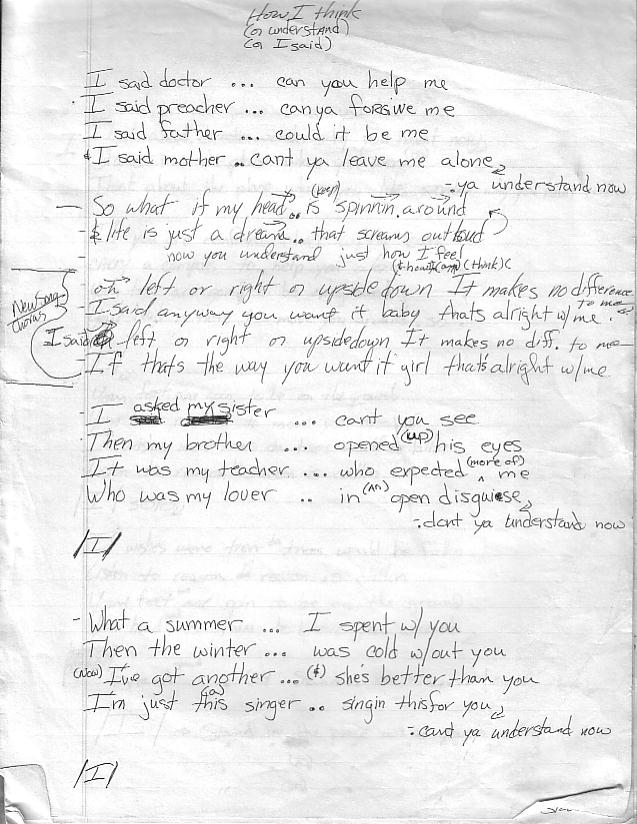 How I think
(or understand)
(or I said)
I said doctor ... can you help me
I said preacher ... can ya forgive me
I said father ... could it be me
& I said mother .. cant ya leave me alone
-ya understand now
So what if my head .. is (keep) spinnin around
& life is just a dream .. that screams out loud
now you understand just how I feel
(& how I am) (think)
oh left or right or upside down It makes no difference to me
I said anyway you want it baby thats alright w/ me.
New Song Chorus
I said left or right or upsidedown It makes no diff. to me
If thats the way you want it girl that's alright w/ me
I asked my sister ... cant you see
Then my brother ... opened (up) his eyes
It was my teacher ... who expected (more of) me
Who was my lover .. in (an) open disguiese
-dont ya understand now
/I/
- What a summer ... I spent w/ you
Then the winter ... was cold w/out you
(Now) I've got another ... (&) she's better than you
I'm just this (a) singer .. singin this for you
-cant ya understand now
/I/